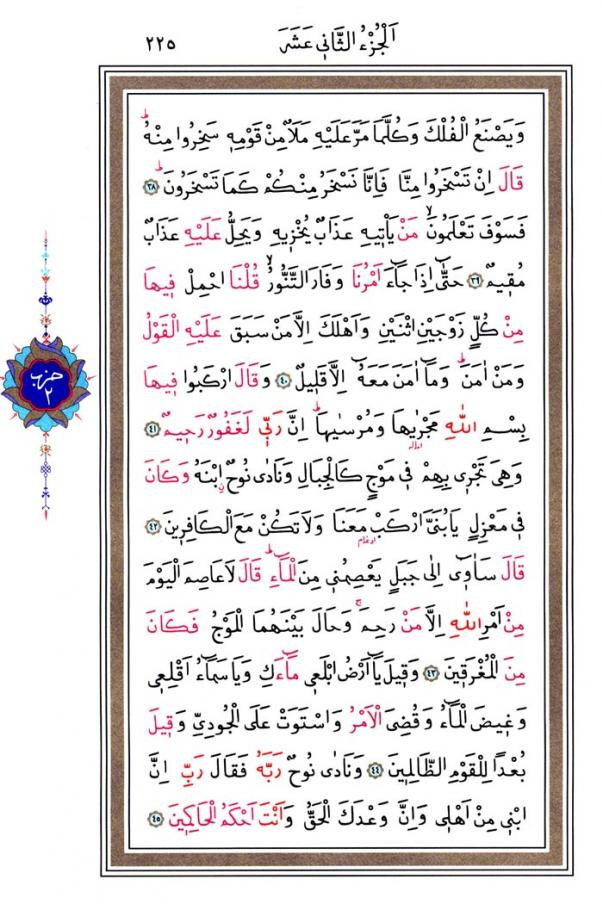 اَلْجُزْءُ الثَّانٖي عَشَرَ ٢٢٥
وَيَصْنَعُ الْفُلْكَ وَكُلَّمَا مَرَّ عَلَيْهِ مَلَاٌ مِنْ قَوْمِهٖ سَخِرُوا مِنْهُۜ
قَالَ اِنْ تَسْخَرُوا مِنَّا فَاِنَّا نَسْخَرُ مِنْكُمْ كَمَا تَسْخَرُونَۜ ﴿٣٨﴾
فَسَوْفَ تَعْلَمُونَۙ مَنْ يَأْتٖيهِ عَذَابٌ يُخْزٖيهِ وَيَحِلُّ عَلَيْهِ عَذَابٌ
مُقٖيمٌ ﴿٣٩﴾ حَتّٰٓى اِذَا جَٓاءَ اَمْرُنَا وَفَارَ التَّنُّورُۙ قُلْنَا احْمِلْ فٖيهَا
مِنْ كُلٍّ زَوْجَيْنِ اثْنَيْنِ وَاَهْلَكَ اِلَّا مَنْ سَبَقَ عَلَيْهِ الْقَوْلُ
وَمَنْ اٰمَنَۜ وَمَٓا اٰمَنَ مَعَهُٓ اِلَّا قَلٖيلٌ ﴿٤٠﴾ وَقَالَ ارْكَبُوا فٖيهَا
بِسْمِ اللّٰهِ مَجْرٰۭيهَا وَمُرْسٰيهَاۜ اِنَّ رَبّٖي لَغَفُورٌ رَحٖيمٌ ﴿٤١﴾
اماله
وَهِيَ تَجْرٖي بِهِمْ فٖي مَوْجٍ كَالْجِبَالِ وَنَادٰى نُوحٌۨ ابْنَهُ وَكَانَ
فٖي مَعْزِلٍ يَا بُنَيَّ ارْكَبْ مَعَنَا وَلَا تَكُنْ مَعَ الْكَافِرٖينَ ﴿٤٢﴾
ادغام
قَالَ سَاٰوٖٓي اِلٰى جَبَلٍ يَعْصِمُنٖي مِنَ الْمَٓاءِۜ قَالَ لَا عَاصِمَ الْيَوْمَ
مِنْ اَمْرِ اللّٰهِ اِلَّا مَنْ رَحِمَۚ وَحَالَ بَيْنَهُمَا الْمَوْجُ فَكَانَ
مِنَ الْمُغْرَقٖينَ ﴿٤٣﴾ وَقٖيلَ يَٓا اَرْضُ ابْلَعٖي مَٓاءَكِ وَيَا سَمَٓاءُ اَقْلِعٖي
وَغٖيضَ الْمَٓاءُ وَقُضِيَ الْاَمْرُ وَاسْتَوَتْ عَلَى الْجُودِيِّ وَقٖيلَ
بُعْدًا لِلْقَوْمِ الظَّالِمٖينَ ﴿٤٤﴾ وَنَادٰى نُوحٌ رَبَّهُ فَقَالَ رَبِّ اِنَّ
ابْنٖي مِنْ اَهْلٖي وَاِنَّ وَعْدَكَ الْحَقُّ وَاَنْتَ اَحْكَمُ الْحَاكِمٖينَ ﴿٤٥﴾
حزب
٢